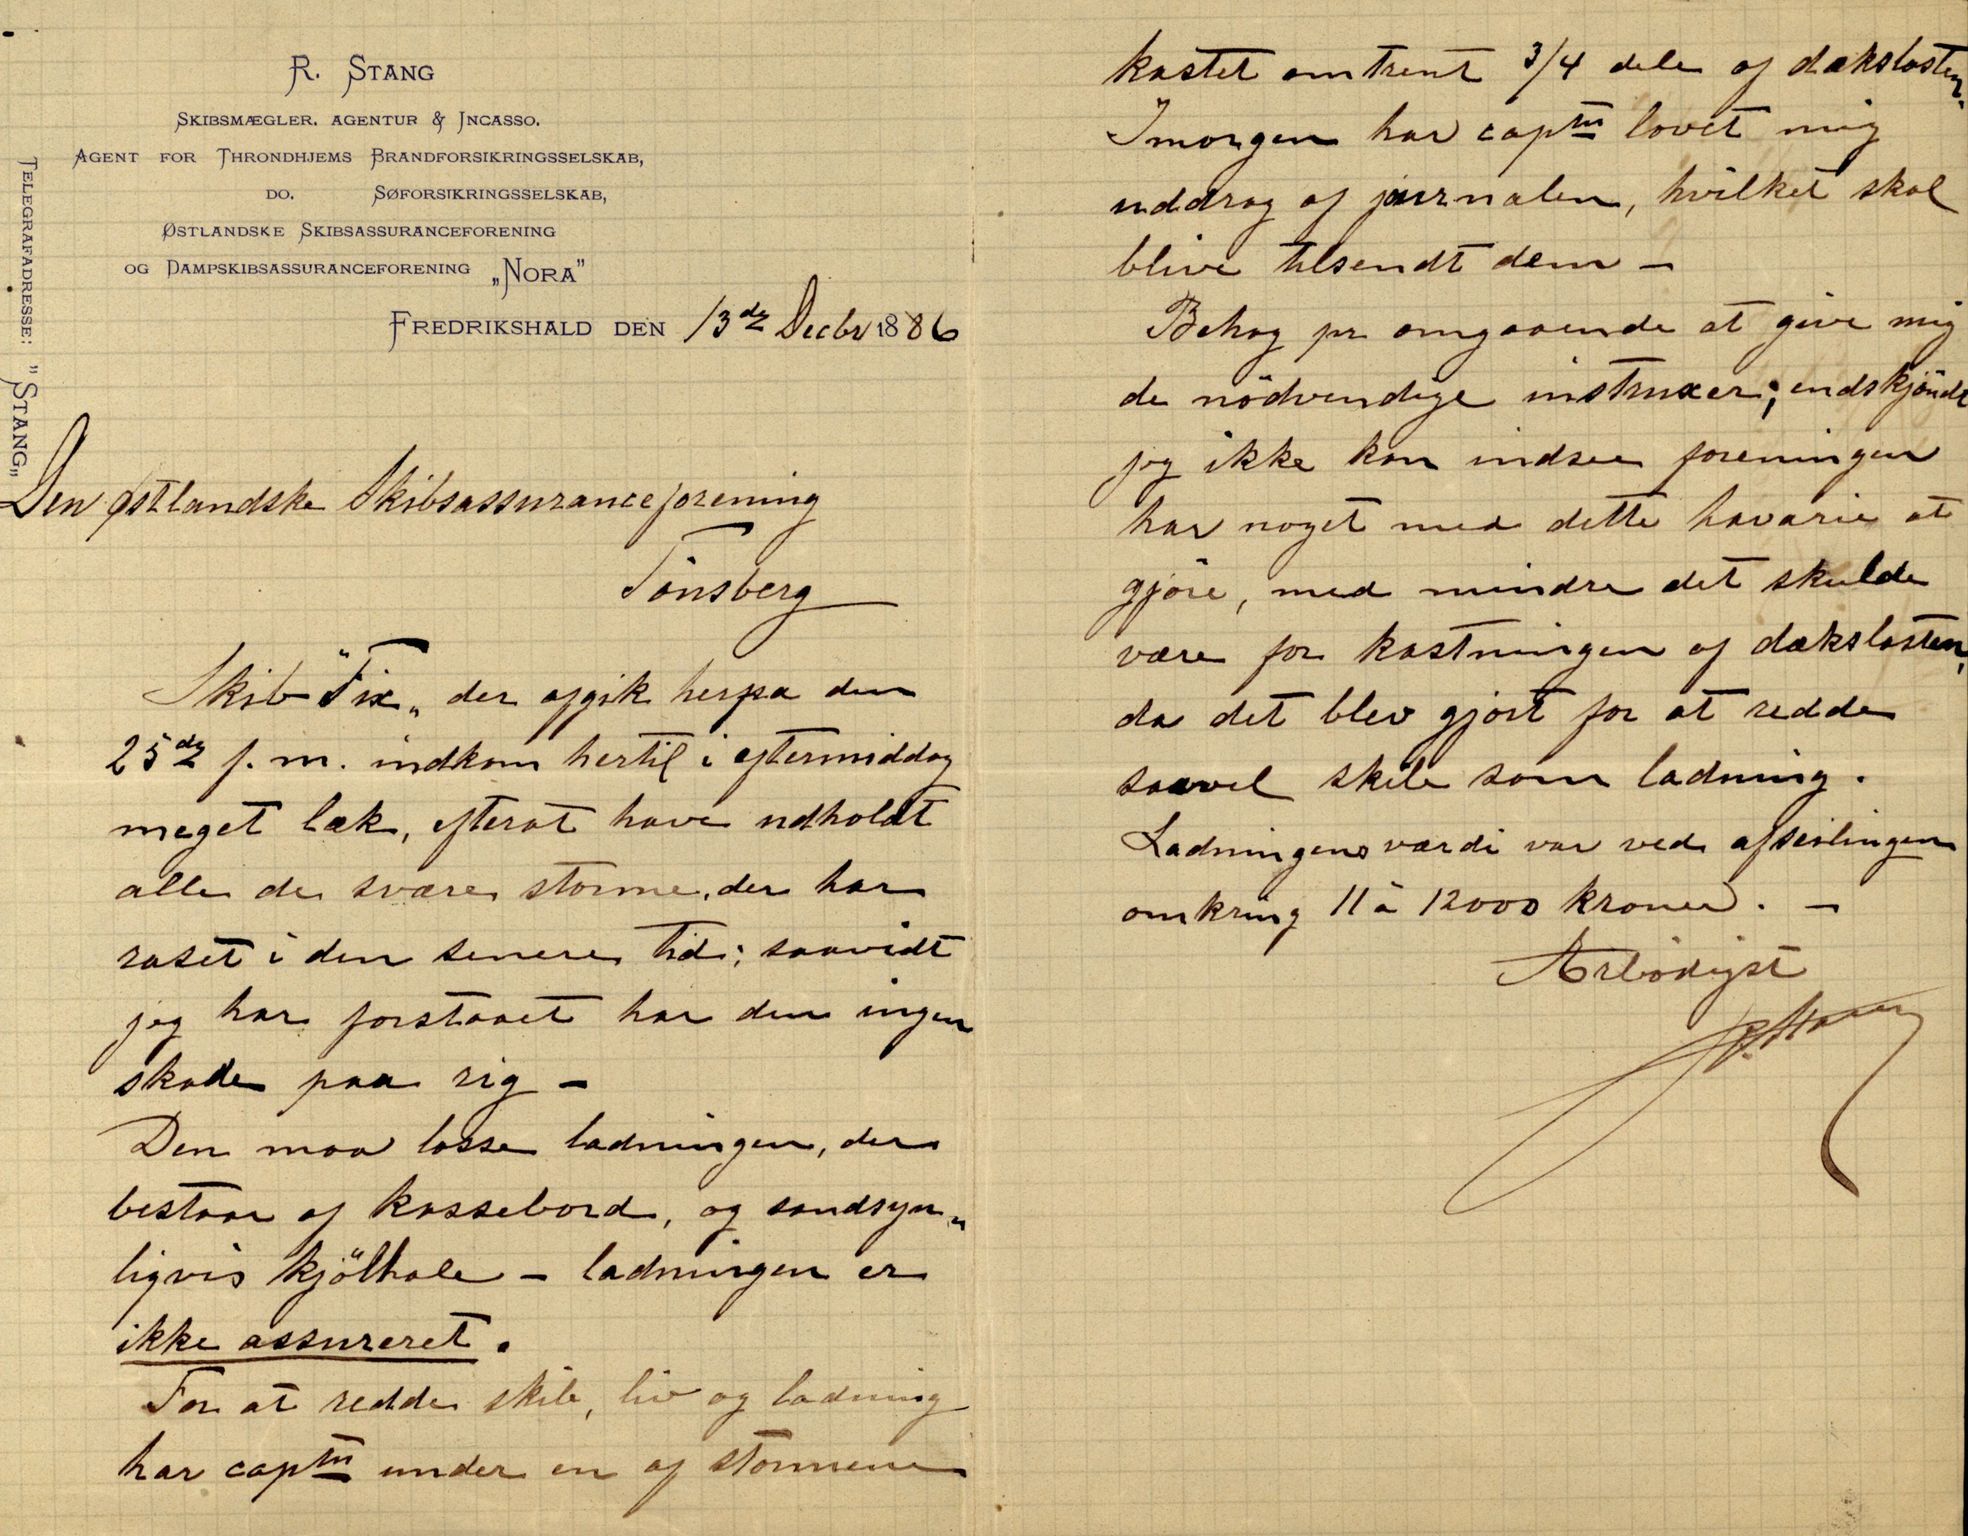 R. Stang
Skibsmægler. Agentur & Incasso.
Agent for Throndhjems Brandforsikringsselskab,
do. Søforsikringsselskab,
Østlandske Skibsassuranceforening
og Dampskibsassuranceforening „Nora”
Telegrafadresse: "Stang„
Fredrikshald den 13de Decbr 1886
Den østlandske Skibsassuranceforening
Tönsberg
Skib "Fix„ der afgik herfra den
25de f. m. indkom hertil i eftermiddag
meget læk, efterat have udholdt
alle de svære storme, der har
raset i den senere tid; saavidt
jeg har forstaaet har den ingen
skade paa rig –
Den maa losse ladningen, der
bestaar af kassebord, og sandsyn„
ligvis kjölhale – ladningen er
ikke assureret.
For at redde skib, liv og ladning
har captn under en af stormene
kastet omtrent 3/4 dele af dækslasten.
Imorgen har captn lovet mig
uddrag af journalen, hvilket skal
blive tilsendt dem –
Behag pr omgaaende at give mig
de nödvendige instruxer; endskjöndt
jeg ikke kan indsee foreningen
har noget med dette havarie at
gjöre, med mindre det skulde
være for kastningen af dækslasten,
da det blev gjort for at redde
saavel skib som ladning.
Ladningens værdi var ved afseilingen
omkring 11 à 12000 kroner. –
Ærbödigst
R Stang